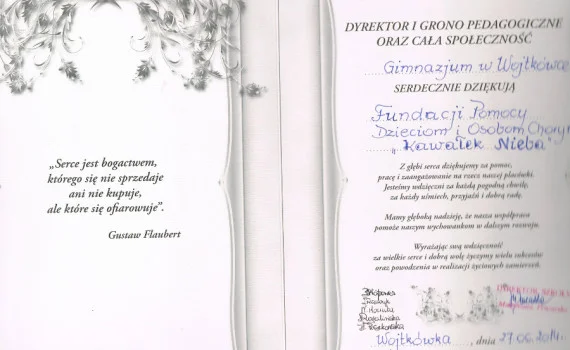 „Serce jest bogactwem,
którego się nie sprzedaje
ani nie kupuje,
ale które się ofiarowuje”.
Gustaw Flaubert
DYREKTOR I GRONO PEDAGOGICZNE
ORAZ CAŁA SPOŁECZNOŚĆ
Gimnazjum w Wojtkówce
SERDECZNIE DZIĘKUJĄ
Fundacji Pomocy
Dzieciom i Osobom Chorym
„Kawałek Nieba”
Z głębi serca dziękujemy za pomoc,
pracę i zaangażowanie na rzecz naszej placówki.
Jesteśmy wdzięczni za każdą pogodną chwilę,
za każdy uśmiech, przyjaźń i dobrą radę.
Mamy głęboką nadzieję, że nasza współpraca
pomoże naszym wychowankom w dalszym rozwoju.
Wyrażając swą wdzięczność
za wielkie serce i dobrą wolę życzymy wielu sukcesów
oraz powodzenia w realizacji życiowych zamierzeń.
DYREKTOR SZKOŁY
Wojtkówka, dnia 27.06.2014r.